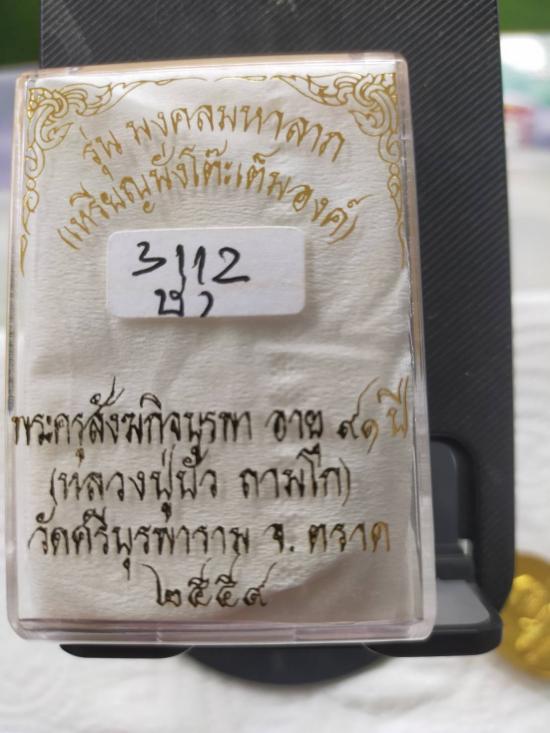 รุ่น มงคลมหาลาภ
(เหรียญนั่งโต๊ะเต็มองค์)
3112
พระครูสังฆกิจบูรพา อายุ ๙๑ ปี
(หลวงปู่บัว ถามโก)
วัดศรีบุรพาราม จ. ตราด
๒๕๕๙